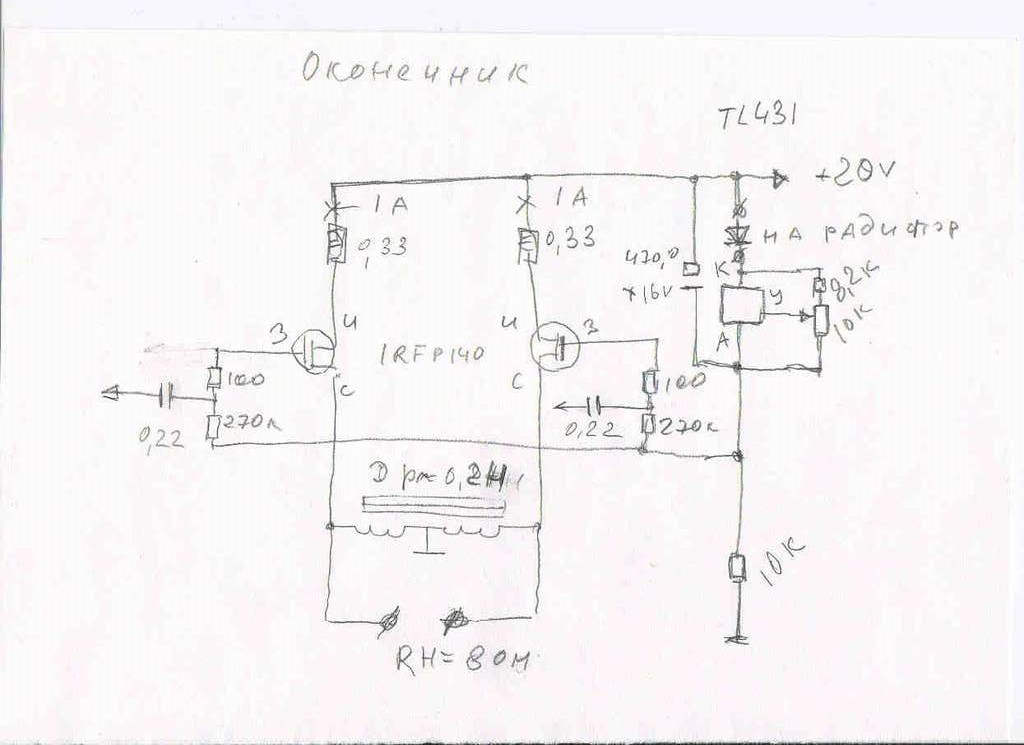 Оконечник
TL431
+20V
1А 1А
0,33 0,33
НА РАДИАТОР
470,0
×16V
К
У
А
8,2К
10К
З И
И З
IRFP140
С
С
100
100
0,22 270к
0,22 270к
10К
RН=8ОМ